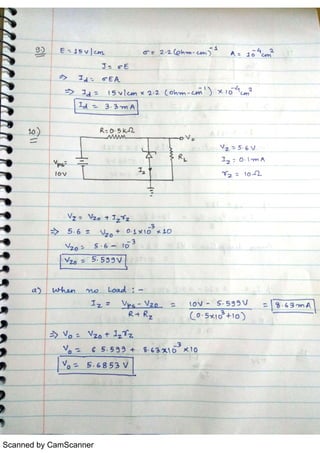 9.) E = 15 v/cm σ = 2.2 (ohm-cm)⁻¹ A = 10⁻⁴ cm²
J = σE
⇒ Id = σEA
⇒ Id = 15 v/cm × 2.2 (ohm-cm⁻¹) × 10⁻⁴ cm²
Id = 3.3 mA
10.) R = 0.5 kΩ
Vo
Vz = 5.6 V
VPS = 10V
Iz
RL
Iz = 0.1 mA
rz = 10 Ω
Vz = Vzo + Iz rz
⇒ 5.6 = Vzo + 0.1×10⁻³ × 10
Vzo = 5.6 − 10⁻³
Vzo = 5.599 V
a) When no Load :-
Iz = VPS − Vzo / R + Rz = 10V − 5.599V / (0.5×10³+10) = 8.63 mA
⇒ Vo = Vzo + Iz rz
Vo = 5.599 + 8.63×10⁻³ × 10
Vo = 5.6853 V
Scanned by CamScanner